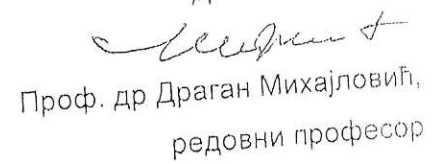 Проф. др Драган Михајловић,
редовни професор